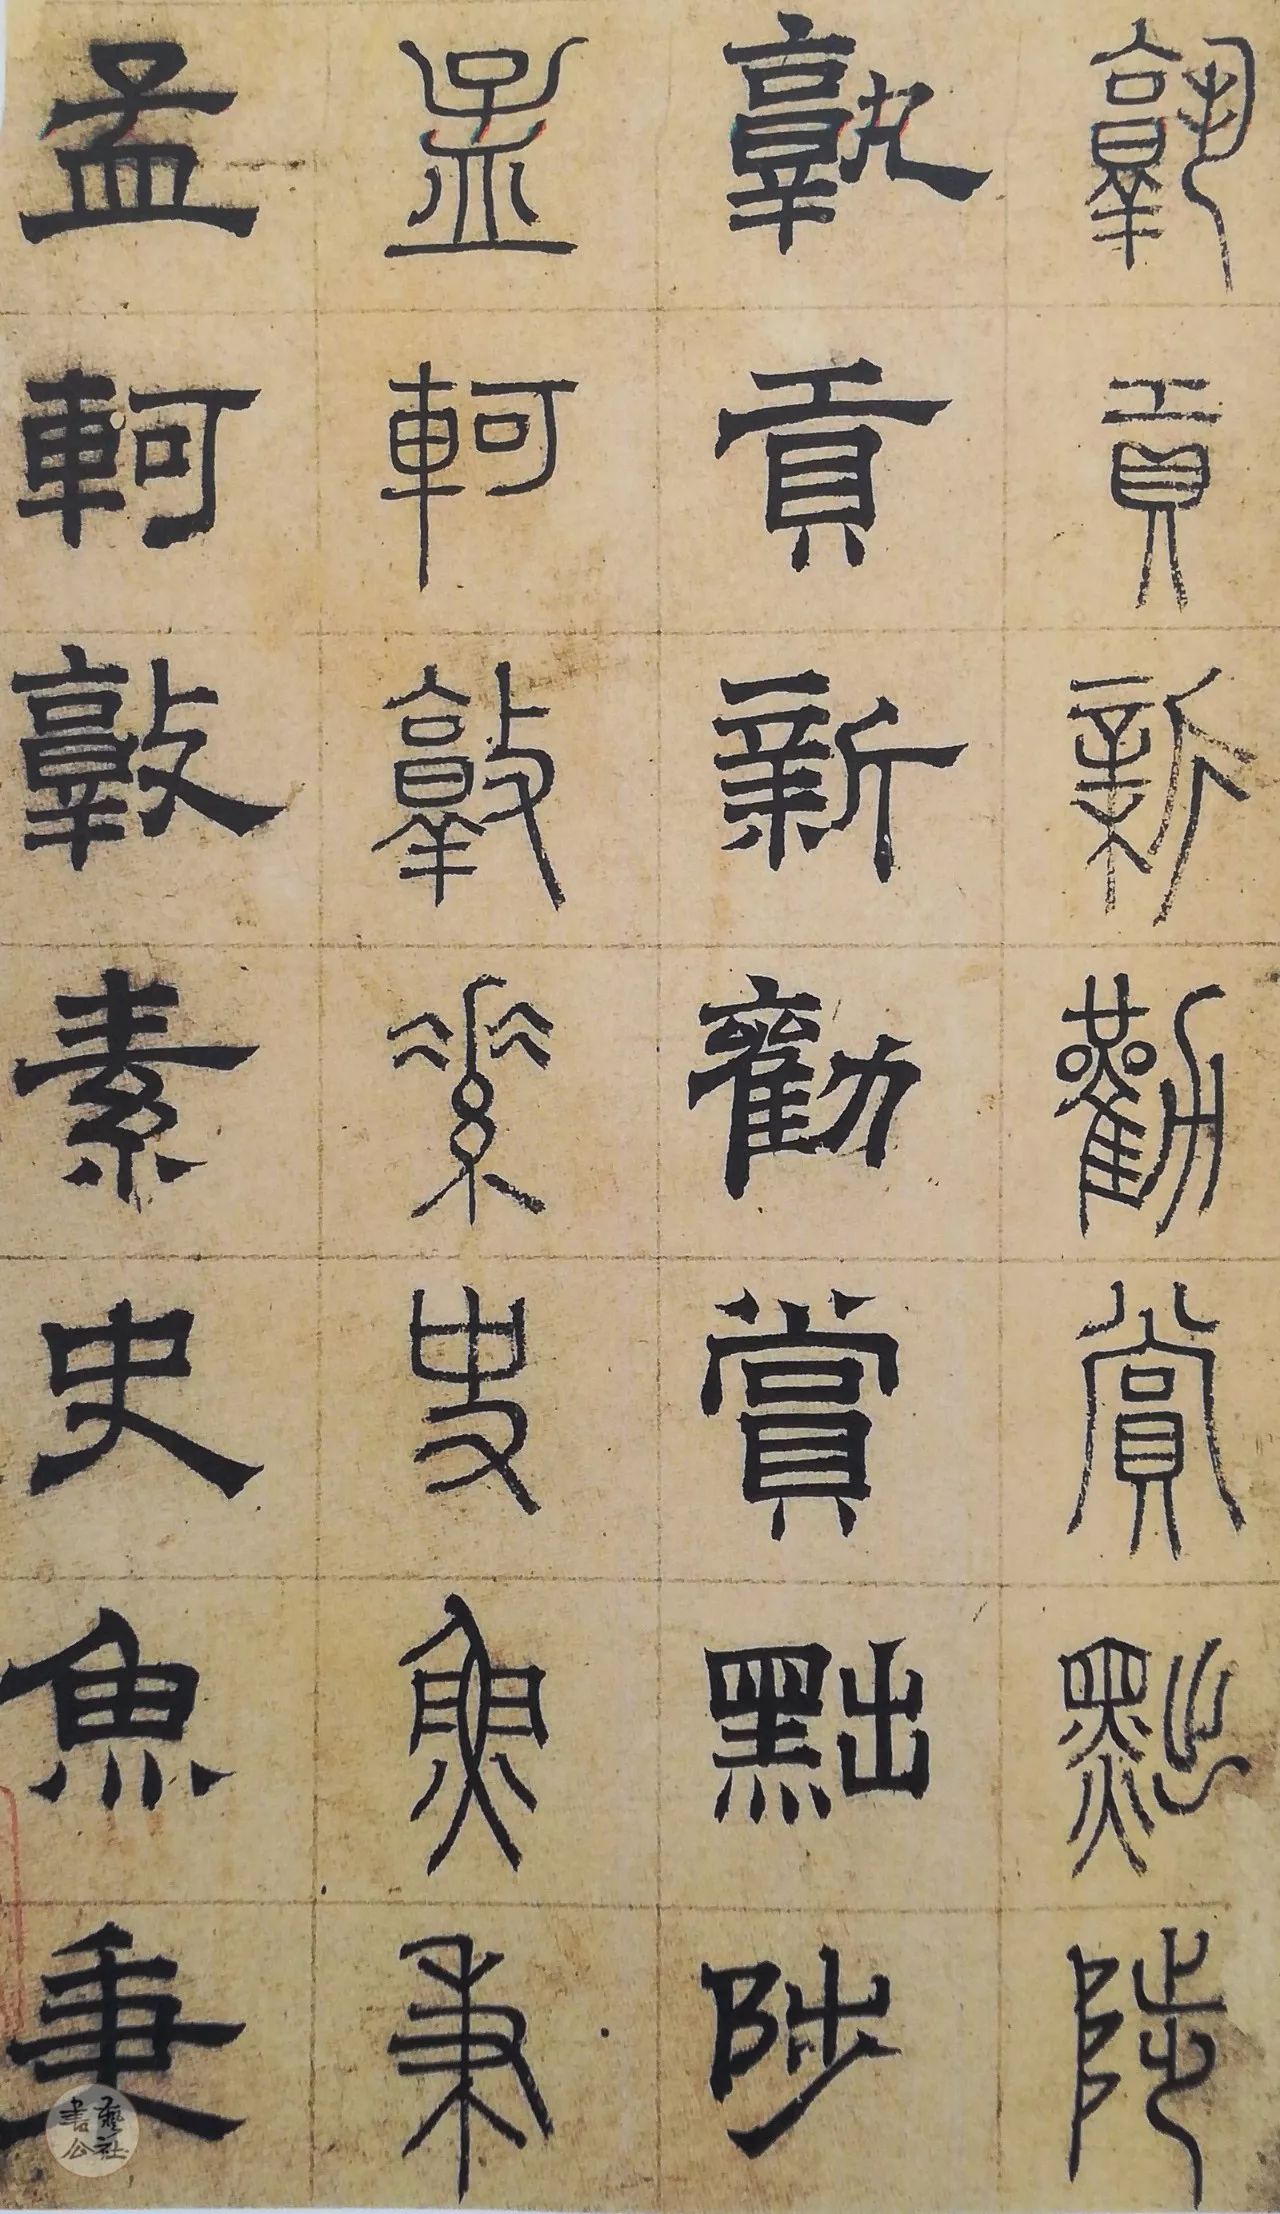 孰貢新勸賞黜陟
孰貢新勸賞黜陟
孟軻敦素史魚秉
孟軻敦素史魚秉
書藝公社